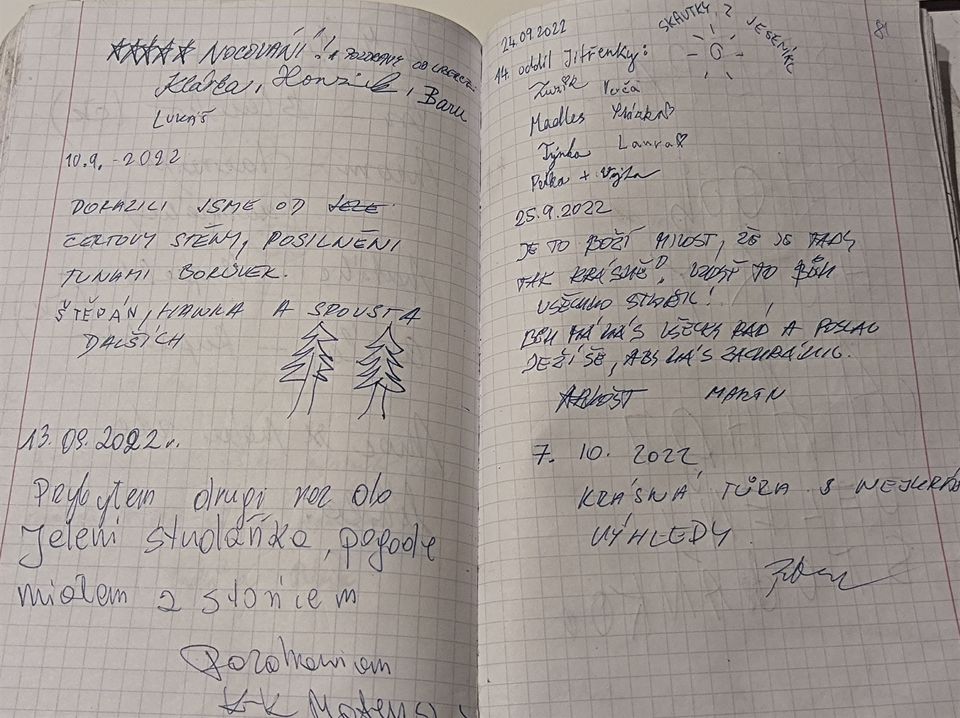 NOCOVÁNÍ!! A POZDRAVY OD
Klárka, Honzík, Baru
LUKÁŠ
10.9.-2022
DORAZILI JSME OD
ČERTOVY STĚNY, POSILNĚNI
TUNAMI BORŮVEK.
ŠTĚPÁN, HANKA A SPOUSTA
DALŠÍCH
13.09.2022r.
Przybyłem drugi raz do
Jeleni studańka, pogodę
miałem z słońcem
Pozdrawiam
K-K
24.09.2022
SKAUTKY Z JESENÍKU
81
14. oddíl Jitřenky:
Zuzik Verča
Madles
Týnka Laura♡
Peťka + Vojta
25.9.2022
JE TO BOŽÍ MILOST, ŽE JE TADY
TAK KRÁSNĚ, VŽDYŤ TO BŮH
VŠECHNO STVOŘIL!
BŮH MÁ NÁS VŠECKY RÁD A POSLAL
JEŽÍŠE, ABY NÁS ZACHRÁNIL.
ARNOŠT MARTIN
7. 10. 2022
KRÁSNÁ TŮRA S
VÝHLEDY